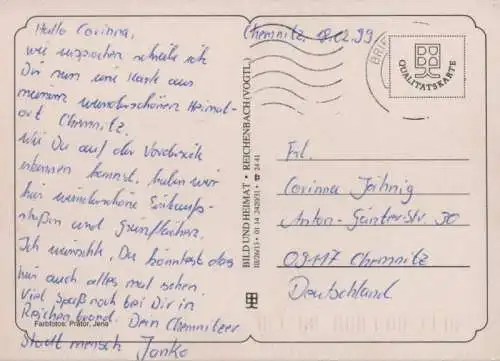 Hallo Corinna,
wie versprochen schreibe ich
Dir nun eine Karte aus
meinem wunderschönen Heimat-
ort Chemnitz.
Wie Du auf der Vorderseite
erkennen kannst, haben wir
hier wunderschöne Einkaufs-
straßen und Grünflächen.
Ich wünschte, Du könntest das
hier auch alles mal sehen
Viel Spaß noch bei Dir in
Reichenbrand. Dein Chemnitzer
Stadtmensch Janko
Farbfotos: Prätor, Jena
BILD UND HEIMAT • REICHENBACH (VOGTL.)
01 14 24 41
Chemnitz, 02.99
BRIEF
QUALITÄTSKARTE
Frl.
Corinna Jähnig
Anton-Günter-Str. 30
09117 Chemnitz
Deutschland